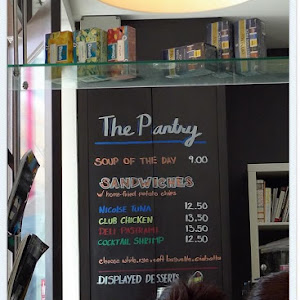 The Pantry
SOUP OF THE DAY 9.00
SANDWICHES
w/ home-fried potato chips
NICOISE TUNA 12.50
CLUB CHICKEN 13.50
DELI PASTRAMI 13.50
COCKTAIL SHRIMP 12.50
choose white, rye, soft
DISPLAYED DESSERTS